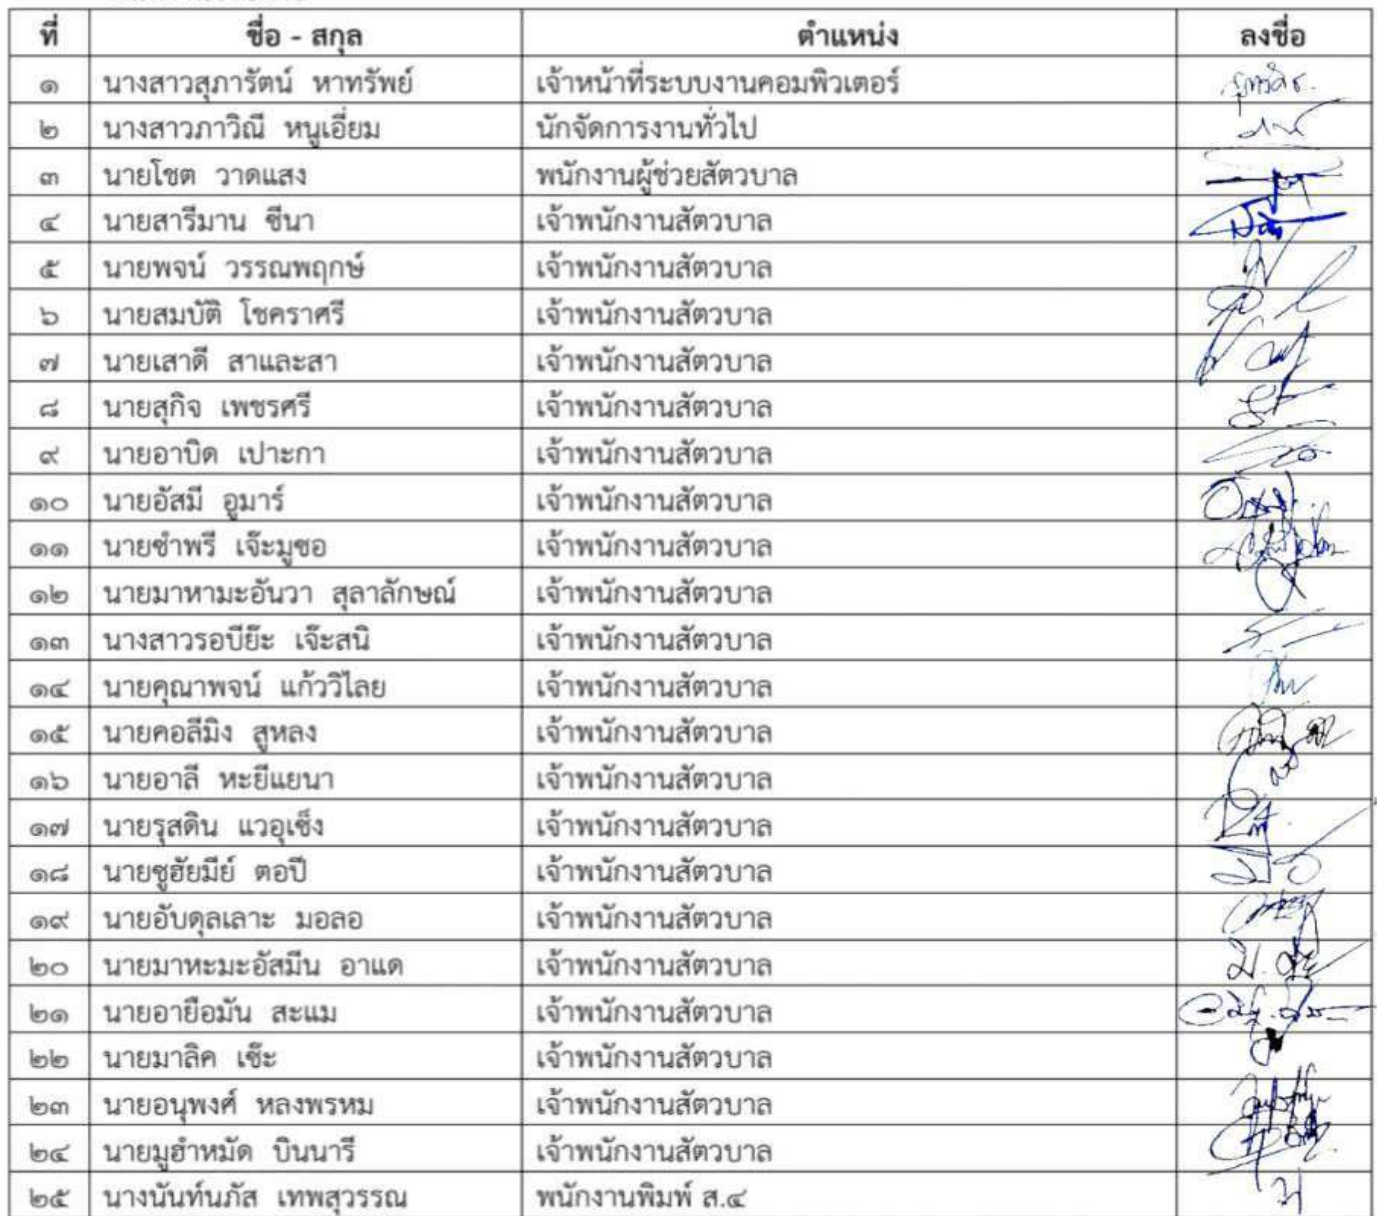 ที่ ชื่อ - สกุล ตำแหน่ง ลงชื่อ
๑ นางสาวสุภารัตน์ หาทรัพย์ เจ้าหน้าที่ระบบงานคอมพิวเตอร์
๒ นางสาวภาวิณี หนูเอี่ยม นักจัดการงานทั่วไป
๓ นายโชต วาดแสง พนักงานผู้ช่วยสัตวบาล
๔ นายสารีมาน ซีนา เจ้าพนักงานสัตวบาล
๕ นายพจน์ วรรณพฤกษ์ เจ้าพนักงานสัตวบาล
๖ นายสมบัติ โชคราศรี เจ้าพนักงานสัตวบาล
๗ นายเสาดี สาและสา เจ้าพนักงานสัตวบาล
๘ นายสุกิจ เพชรศรี เจ้าพนักงานสัตวบาล
๙ นายอาบิด เปาะกา เจ้าพนักงานสัตวบาล
๑๐ นายอัสมี อูมาร์ เจ้าพนักงานสัตวบาล
๑๑ นายซำพรี เจ๊ะมูซอ เจ้าพนักงานสัตวบาล
๑๒ นายมาหามะอันวา สุลาลักษณ์ เจ้าพนักงานสัตวบาล
๑๓ นางสาวรอบีย๊ะ เจ๊ะสนิ เจ้าพนักงานสัตวบาล
๑๔ นายคุณาพจน์ แก้ววิไลย เจ้าพนักงานสัตวบาล
๑๕ นายคอลีมิง สูหลง เจ้าพนักงานสัตวบาล
๑๖ นายอาลี หะยีแยนา เจ้าพนักงานสัตวบาล
๑๗ นายรุสดิน แวอุเซ็ง เจ้าพนักงานสัตวบาล
๑๘ นายซูฮัยมีย์ ตอปี เจ้าพนักงานสัตวบาล
๑๙ นายอับดุลเลาะ มอลอ เจ้าพนักงานสัตวบาล
๒๐ นายมาหะมะอัสมีน อาแด เจ้าพนักงานสัตวบาล
๒๑ นายอายือมัน สะแม เจ้าพนักงานสัตวบาล
๒๒ นายมาลิค เซ๊ะ เจ้าพนักงานสัตวบาล
๒๓ นายอนุพงศ์ หลงพรหม เจ้าพนักงานสัตวบาล
๒๔ นายมูฮำหมัด บินนารี เจ้าพนักงานสัตวบาล
๒๕ นางนันท์นภัส เทพสุวรรณ พนักงานพิมพ์ ส.๔